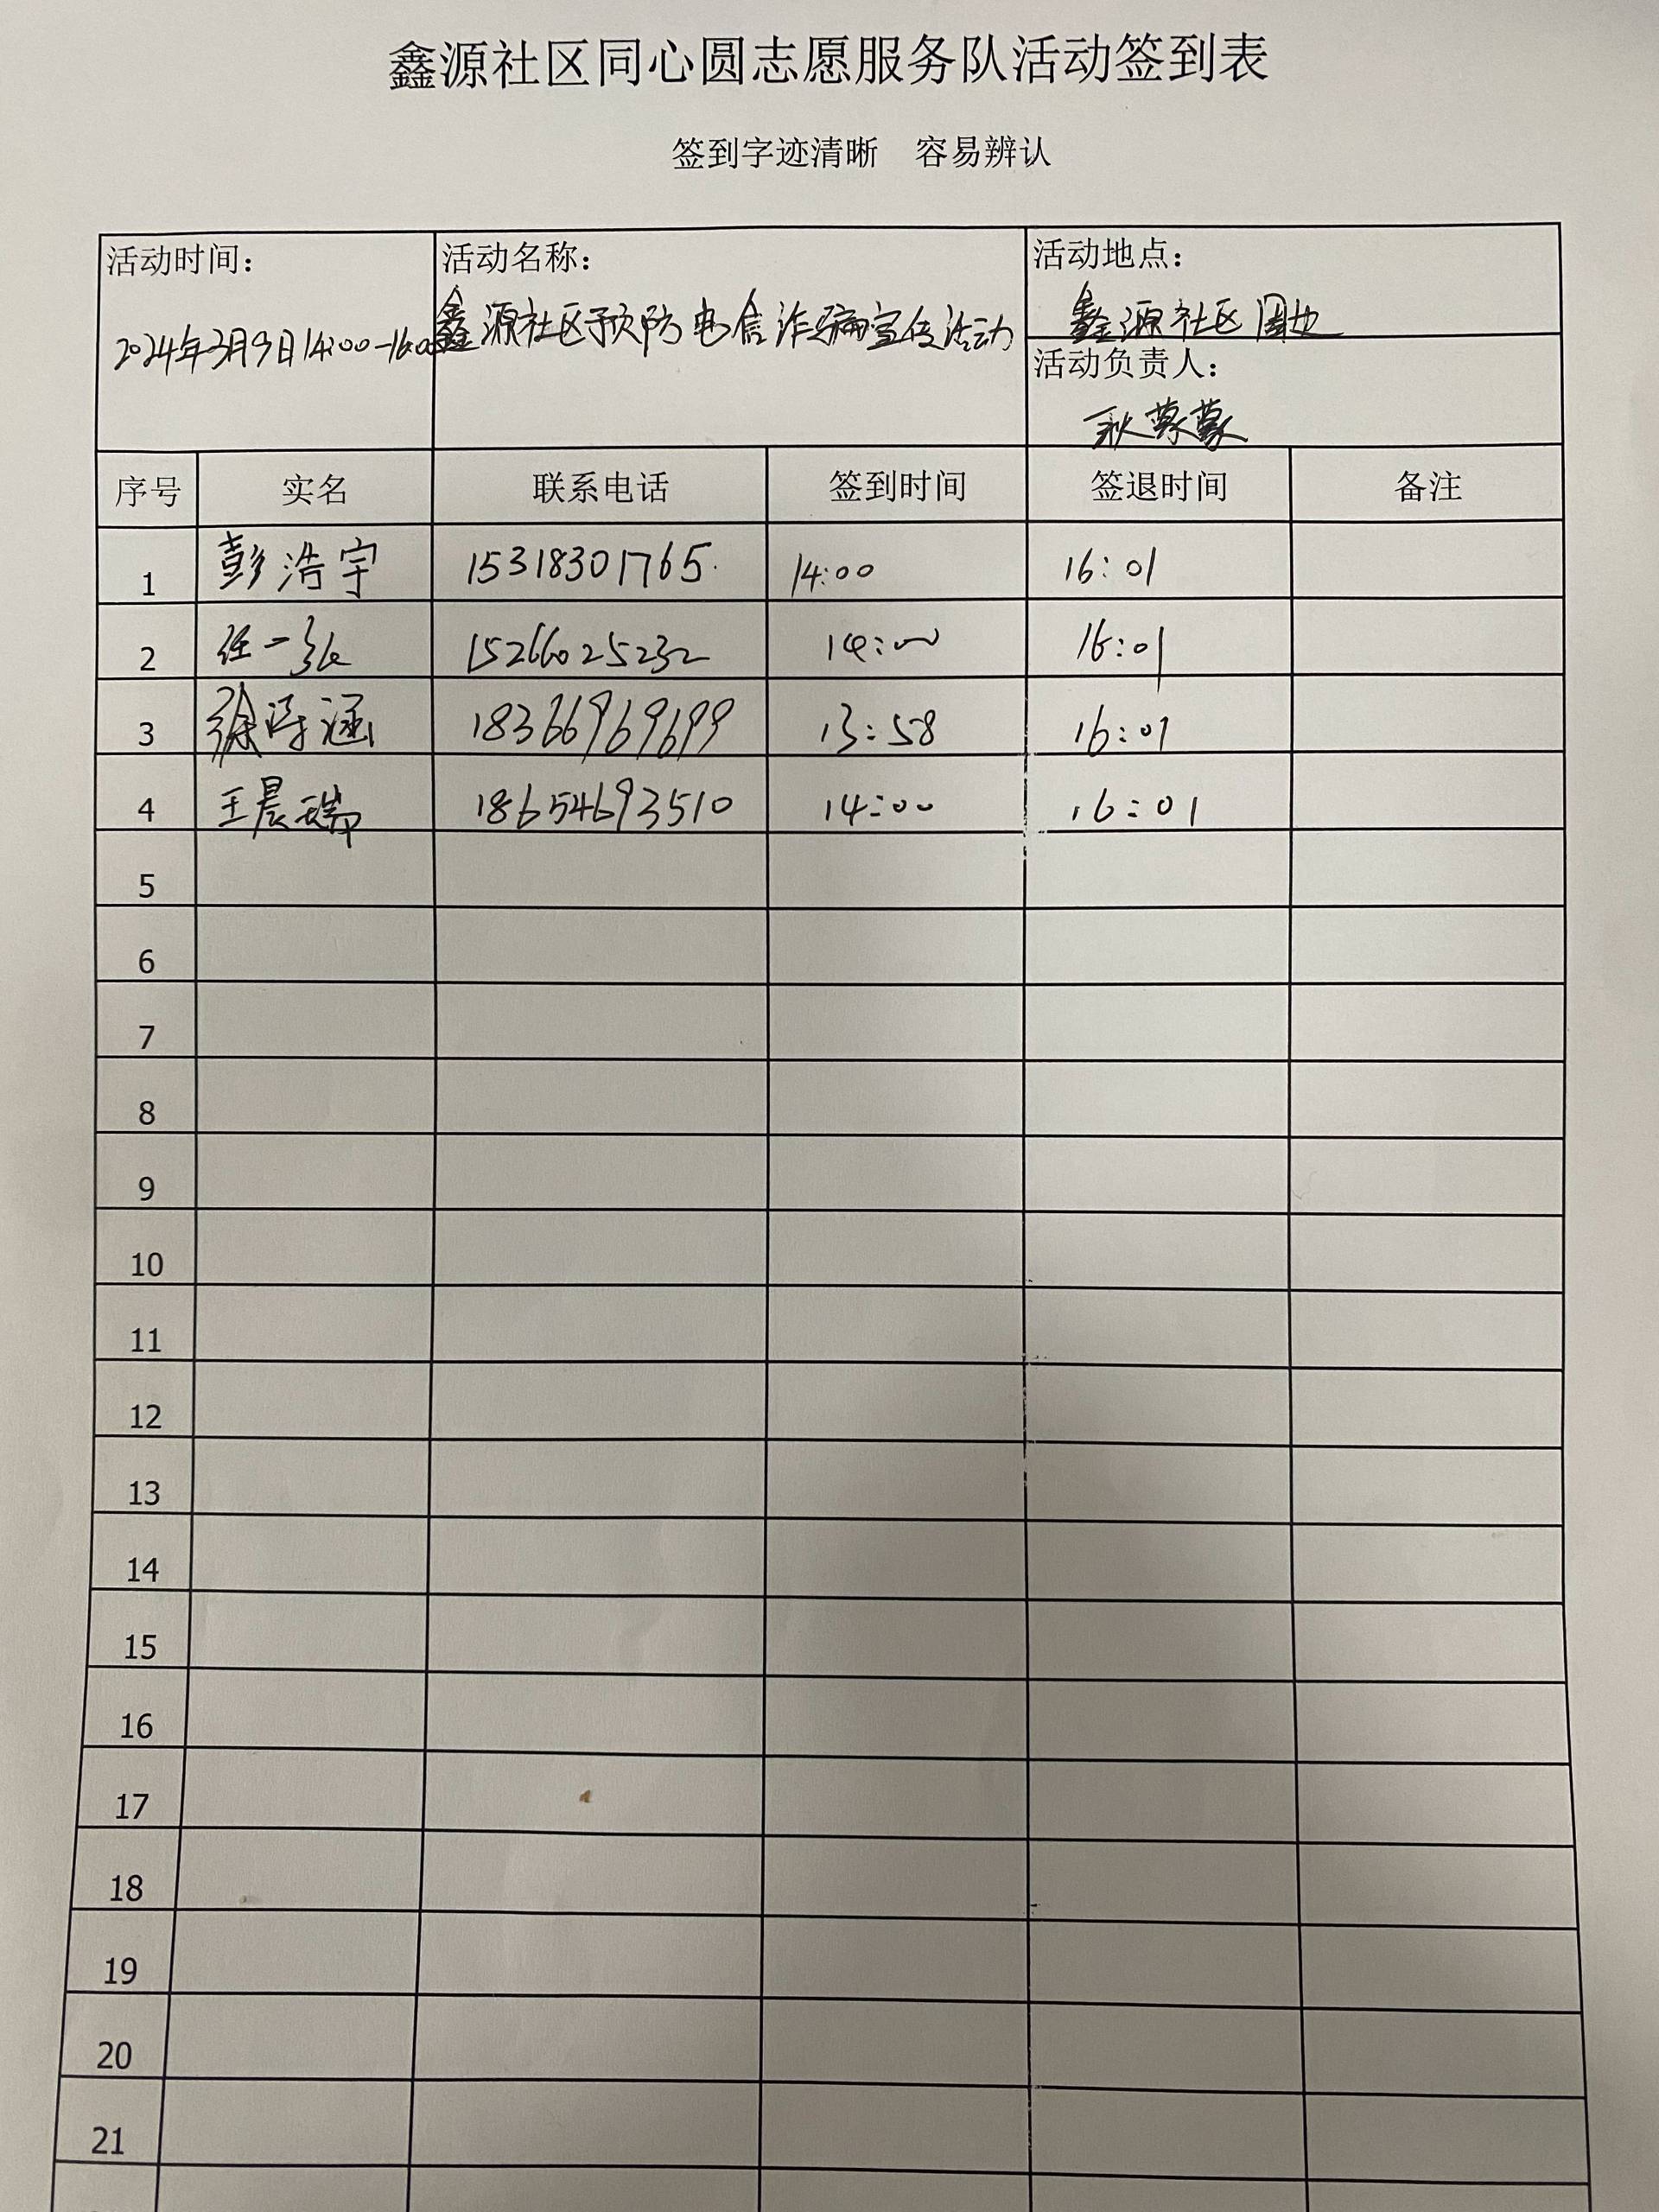 鑫源社区同心圆志愿服务队活动签到表
签到字迹清晰 容易辨认
活动时间:
2024年3月9日14:00-16:00
活动名称:
鑫源社区预防电信诈骗宣传活动
活动地点:
鑫源社区周边
活动负责人:
序号 实名 联系电话 签到时间 签退时间 备注
1 彭浩宇 15318301765 14:00 16:01
2 任一弘 15266025232 14:00 16:01
3 徐 涵 18366969699 13:58 16:01
4 王晨瑞 18654693510 14:00 16:01
5
6
7
8
9
10
11
12
13
14
15
16
17
18
19
20
21